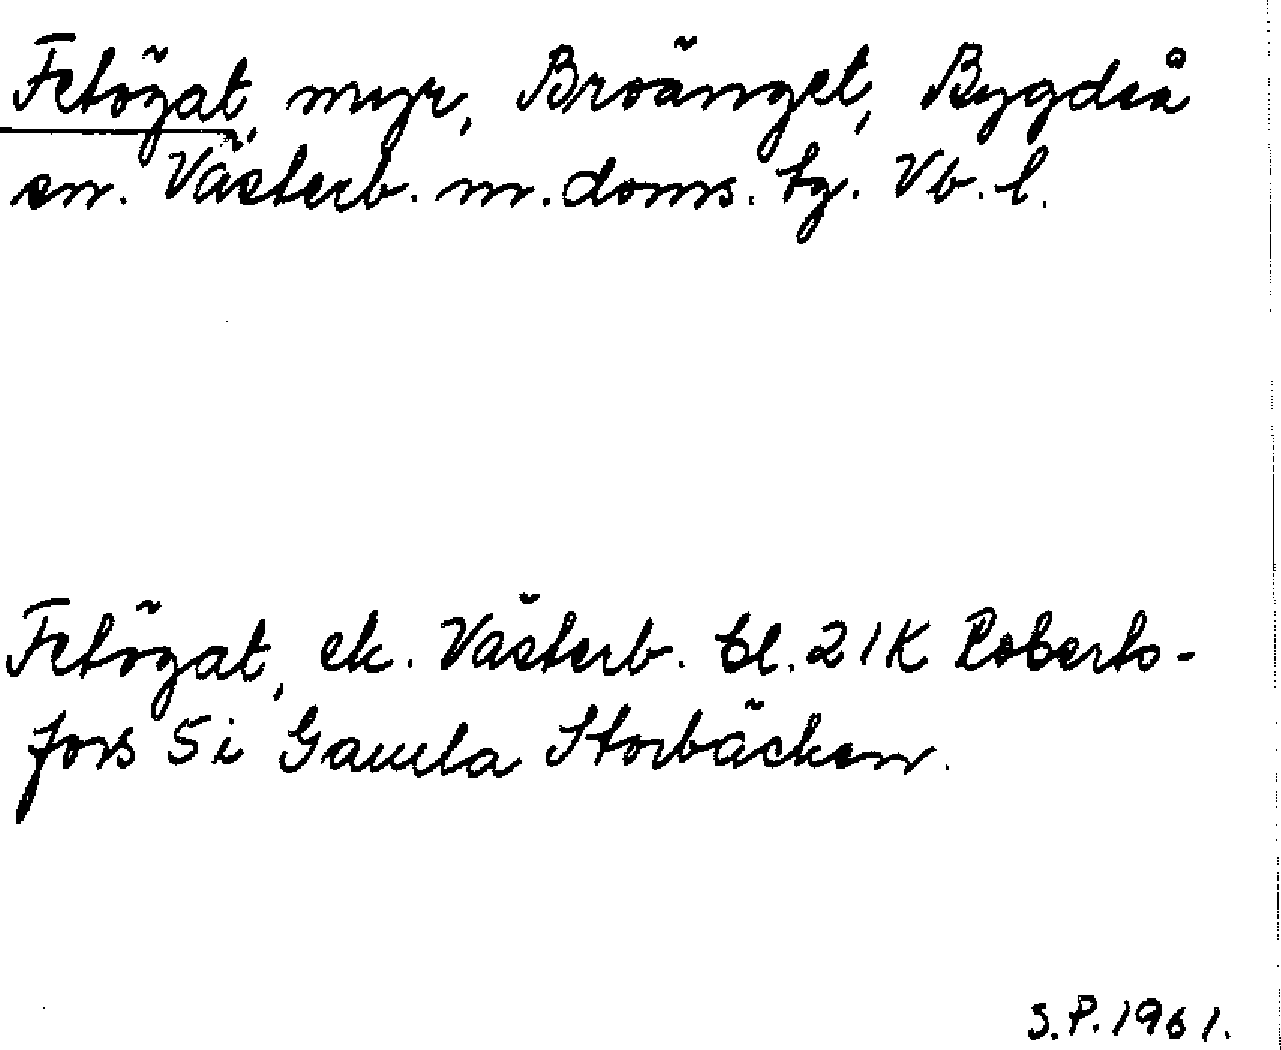 Fetögat, myr, Broänget, Bygdeå
sn. Västerb. n. doms. tg. Vb. l.
Fetögat, ek. Västerb. bl. 21K Roberts-
fors 5i Gamla Storbäcken.
S.P. 1961.